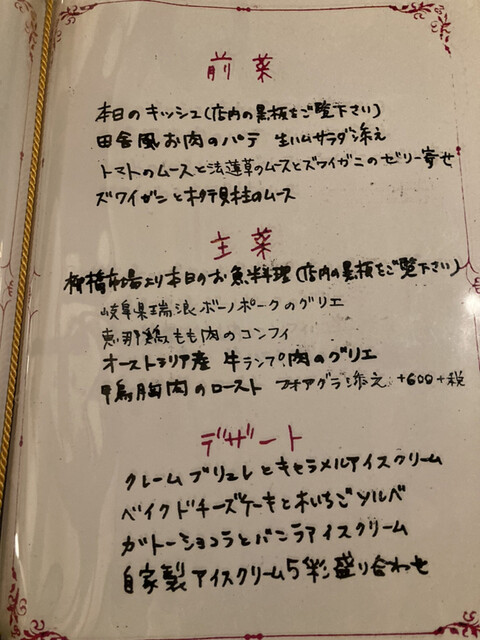 前菜
本日のキッシュ(店内の黒板をご覧下さい)
田舎風お肉のパテ 生ハムサラダ添え
トマトのムースと法蓮草のムースとズワイガニのゼリー寄せ
ズワイガニと帆立貝柱のムース
主菜
柳橋市場より本日のお魚料理(店内の黒板をご覧下さい)
岐阜県瑞浪ボーノポークのグリエ
恵那鶏もも肉のコンフィ
オーストラリア産 牛ランプ肉のグリエ
鴨胸肉のロースト フォアグラ添え +600+税
デザート
クレームブリュレとキャラメルアイスクリーム
ベイクドチーズケーキと木いちごソルベ
ガトーショコラとバニラアイスクリーム
自家製アイスクリーム5彩盛り合わせ